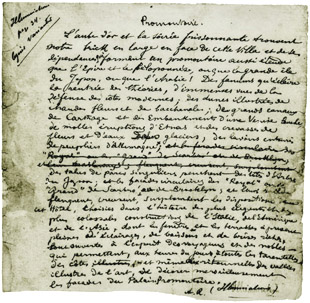 Promontoire.
L'aube d'or et la soirée frissonnante trouvent
notre brick en large en face de cette Villa et de ses
dépendances qui forment un promontoire aussi étendu
que l'Épire et le Péloponnèse, ou que la grande île
du Japon, ou que l'Arabie ! Des fanums qu'éclaire
la rentrée des théories, d'immenses vues de la
défense des côtes modernes ; des dunes illustrées de
chaudes fleurs et de bacchanales ; de grands canaux
de Carthage et des Embankments d'une Venise louche
de molles éruptions d'Etnas et des crevasses de
fleurs et d'eaux des glaciers ; des lavoirs entourés
de peupliers d'Allemagne ;
des talus de parcs singuliers penchant des têtes d'Arbre
du Japon ; les façades circulaires des "Royal" ou des
"Grand" de Scarbro' ou de Brooklyn ; et leurs railways
flanquent, creusent, surplombent les dispositions de cet
Hôtel, choisies dans l'histoire des plus élégantes et des
plus colossales constructions de l'Italie, de l'Amérique
et de l'Asie, dont les fenêtres et les terrasses à présent
pleines d'éclairages, de boissons et de brises riches,
sont ouvertes à l'esprit des voyageurs et des nobles
qui permettent, aux heures du jour, à toutes les tarentelles
des côtes, et même aux ritournelles des vallées
illustres de l'art, de décorer merveilleusement
les façades du Palais-Promontoire.